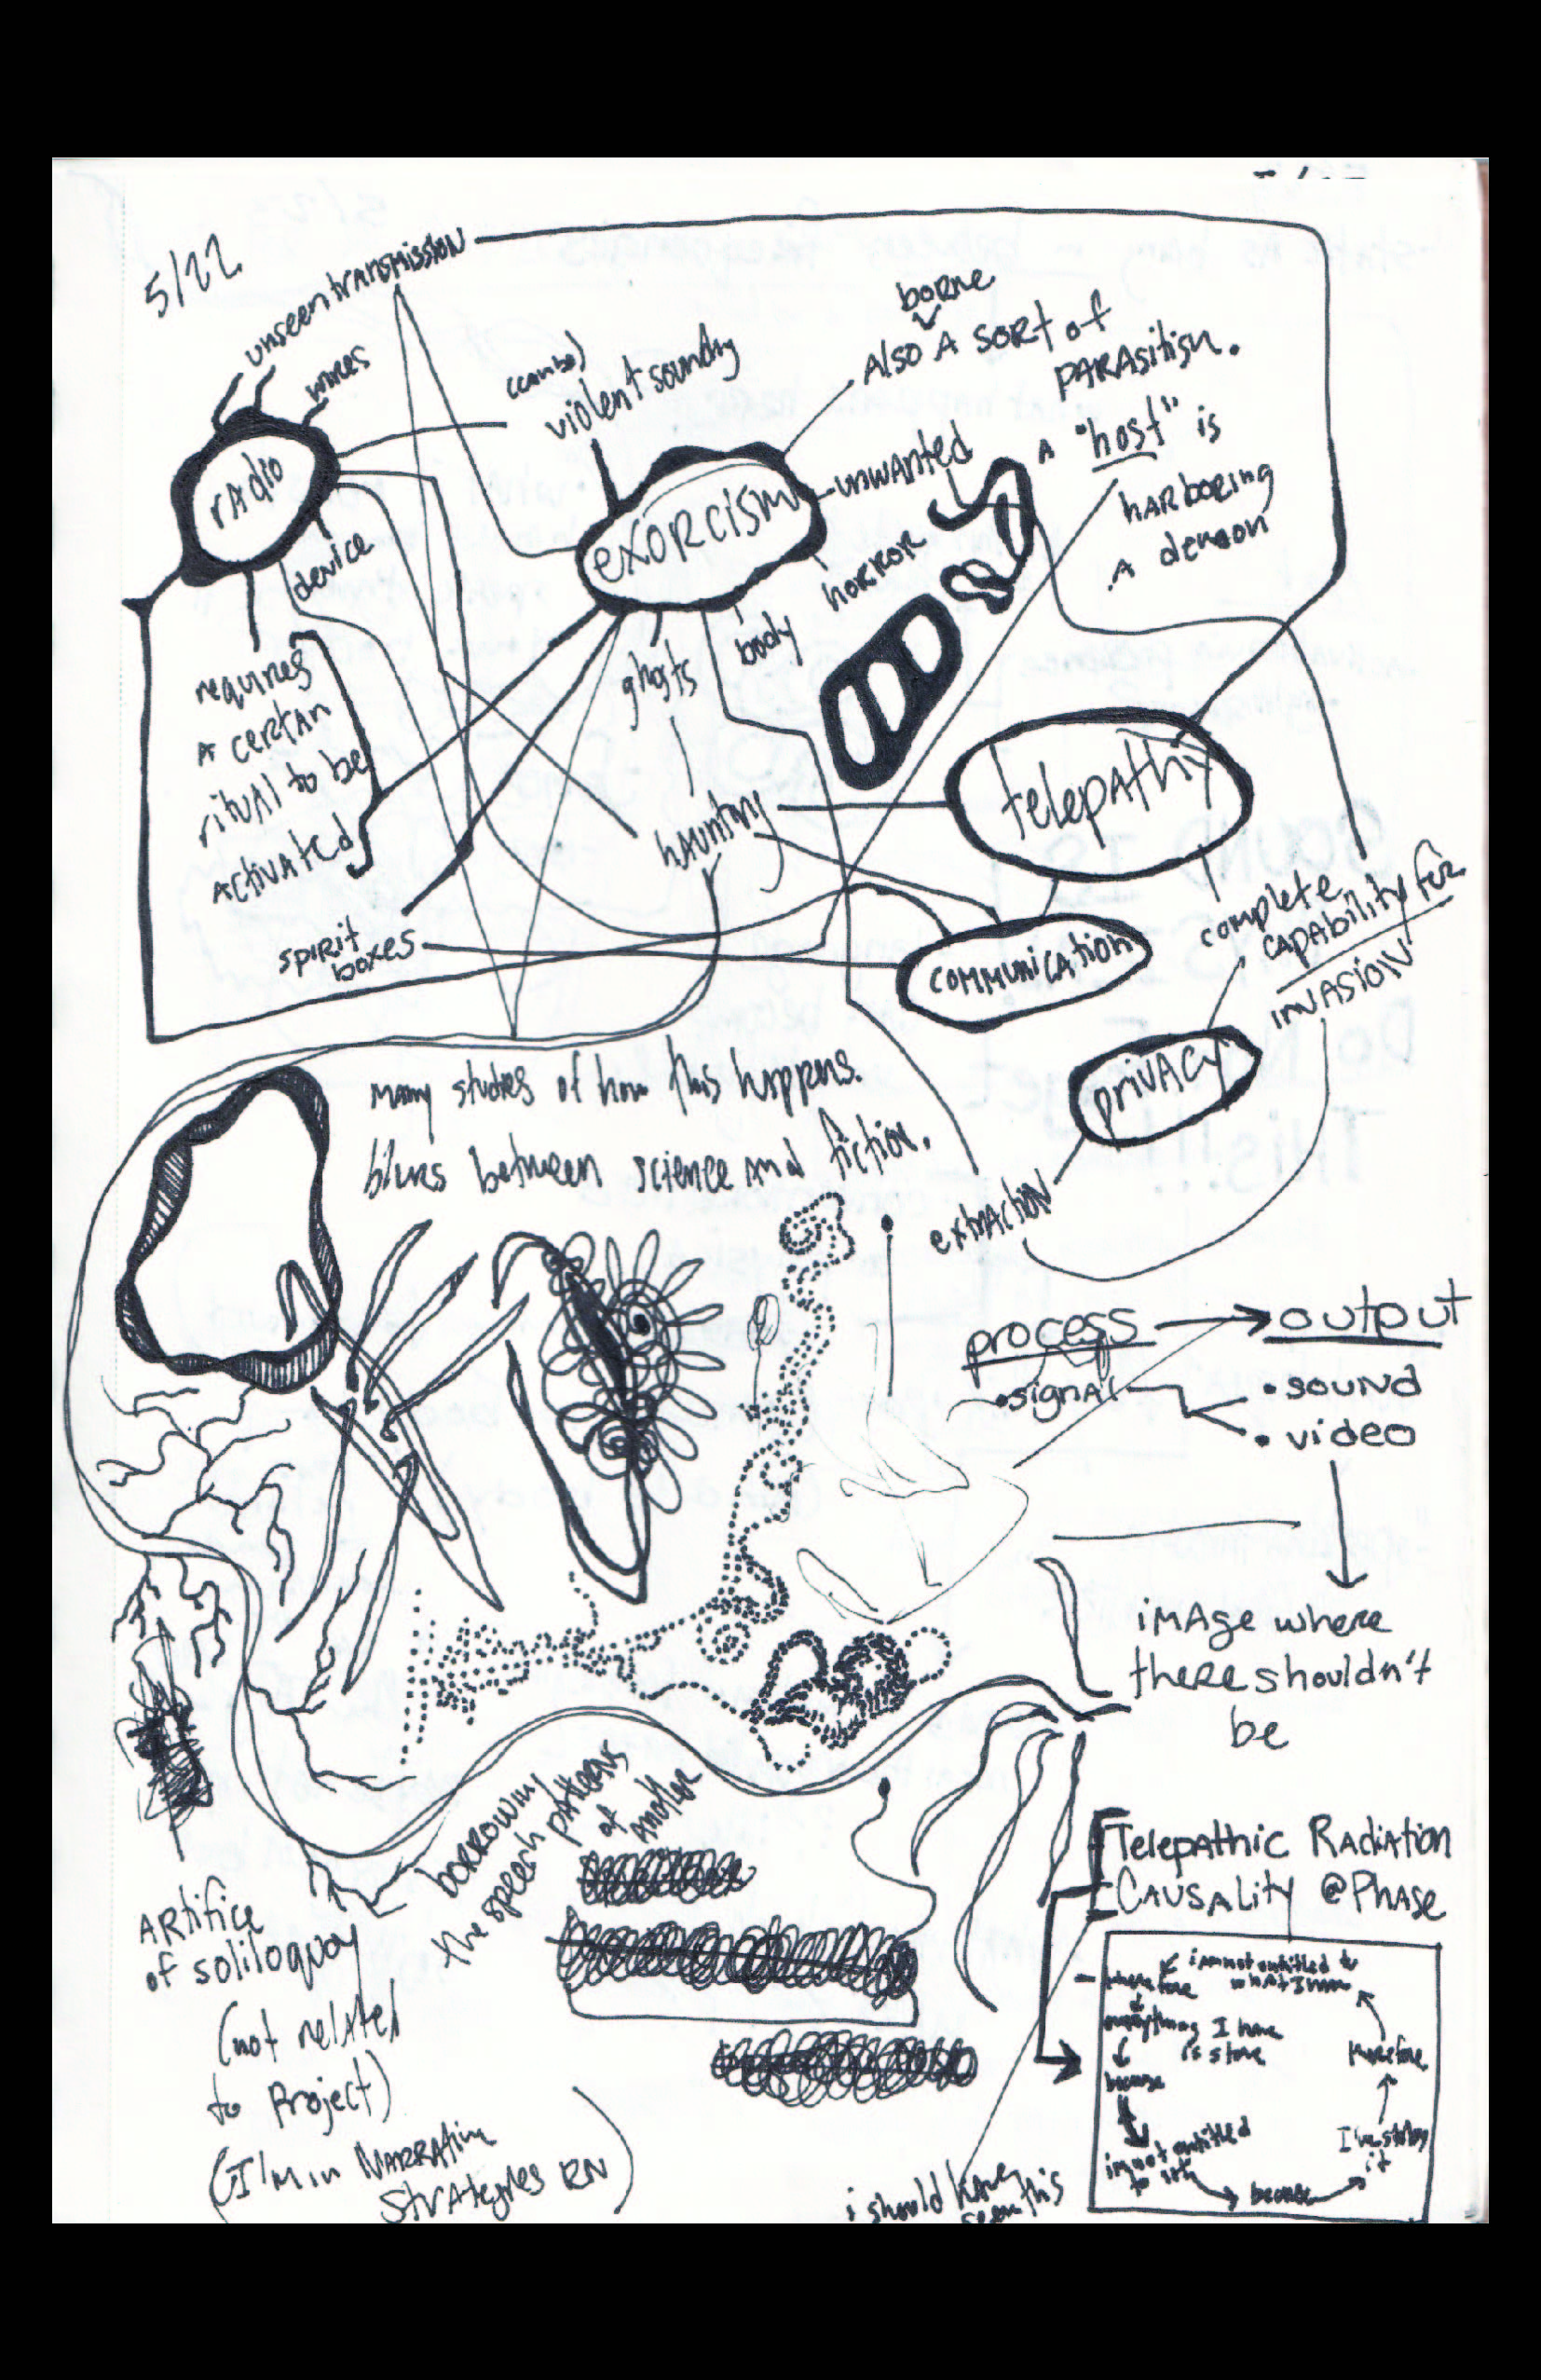 5/22
unseen transmission
wires
radio
device
requires
A certan
ritual to be
activated
spirit
boxes
(can be)
violent sounding
exorcism
borne
Also A sort of
parasitism.
unwanted
A "host" is
harboring
A demon
body horror
ghosts
haunting
telepathy
communication
complete
capability for
invasion
privacy
extraction
many studies of how this happens.
blurs between science and fiction.
process → output
• signal
• sound
• video
image where
there shouldn't
be
borrowing
the speech patterns
of
another
Artifice
of soliloquoy
(not related
to Project)
(I'm in Narrative
Strategies RN)
Telepathic Radiation
Causality @ Phase
i am not entitled to
what I have
therefore
everything I have
is stolen
because
im not entitled
to it
because
I'm stealing
it
therefore
i should have
seen this